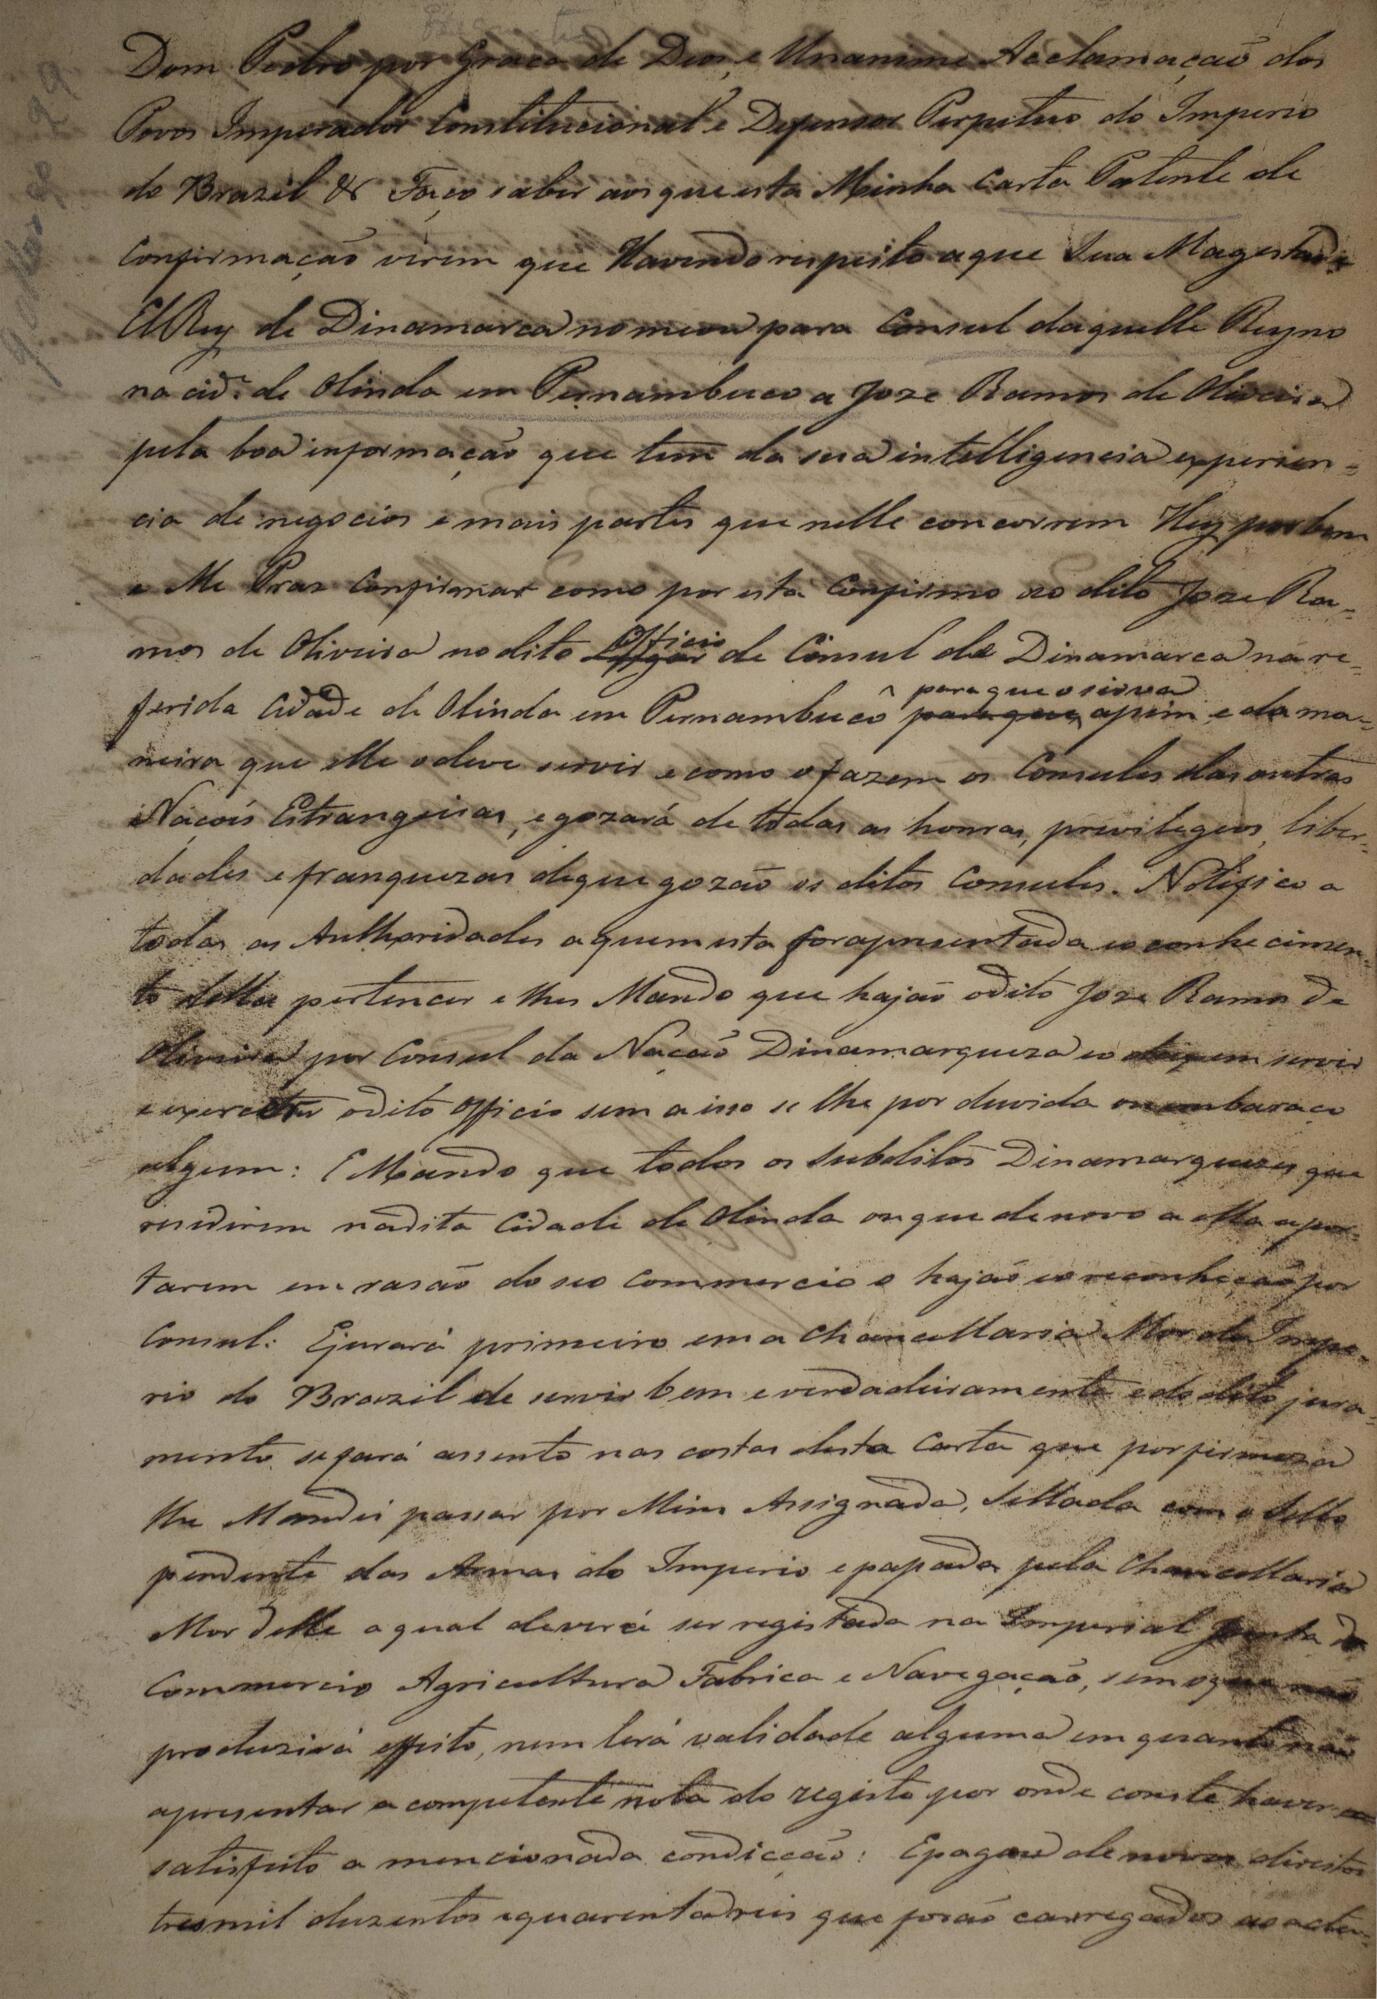 Dom Pedro por Graça de Deos, e Unanime Acclamação dos
Povos Imperador Constitucional e Defensor Perpetuo do Imperio
do Brazil &c Faço saber aos que esta Minha Carta Patente de
Confirmação virem que Havendo respeito a que Sua Magestade
El Rey de Dinamarca nomeou para Consul daquelle Reyno
na cide. de Olinda em Pernambuco a Joze Ramos de Oliveira
pela boa informação que tem da sua intelligencia experien=
cia de negocios e mais partes que nelle concorrem Hey por bem
e Me Praz Confirmar como por esta Confirmo ao dito Joze Ra=
mos de Oliveira no dito Officio de Consul de Dinamarca na re=
ferida Cidade de Olinda em Pernambuco para que o sirva assim e da ma=
neira que elle o deve servir e como o fazem os Consules das outras
Naçois Estrangeiras, e gozará de todas as honras, previlegeos, liber=
dades e franquezas de que gozão os ditos Consules. Notifico a
todas as Authoridades a quem esta for aprezentada e o conhecimen=
to della pertencer e lhes Mando que hajão o dito Joze Ramos de
Oliveira por Consul da Nação Dinamarqueza e o deixem servir
e exercer o dito Officio sem a isso se lhe por duvida ou embaraço
algum: E Mando que todos os subditos Dinamarquezes que
rezidirem na dita Cidade de Olinda ou que de novo a ella apor=
tarem em rasão do seo Commercio o hajão e o reconheção por
Consul: E jurará primeiro em a Chancellaria Mor do Impe=
rio do Brazil de servir bem e verdadeiramente e do dito jura=
mento se fará assento nas costas desta Carta que por firmeza
lhe Mandei passar por Mim Assignada, Sellada com o Sello
pendente das Armas do Imperio e passada pela Chancellaria
Mor delle a qual deverá ser registada na Imperial Junta do
Commercio Agricultura Fabrica e Navegação, sem o que não
produzirá effeito, nem terá validade alguma em quanto não
apresentar a competente nota do registo por onde conste haver
satisfeito a mencionada condicção: E pagou de novos direitos
tres mil duzentos e quarenta reis que forão carregados ao actu=